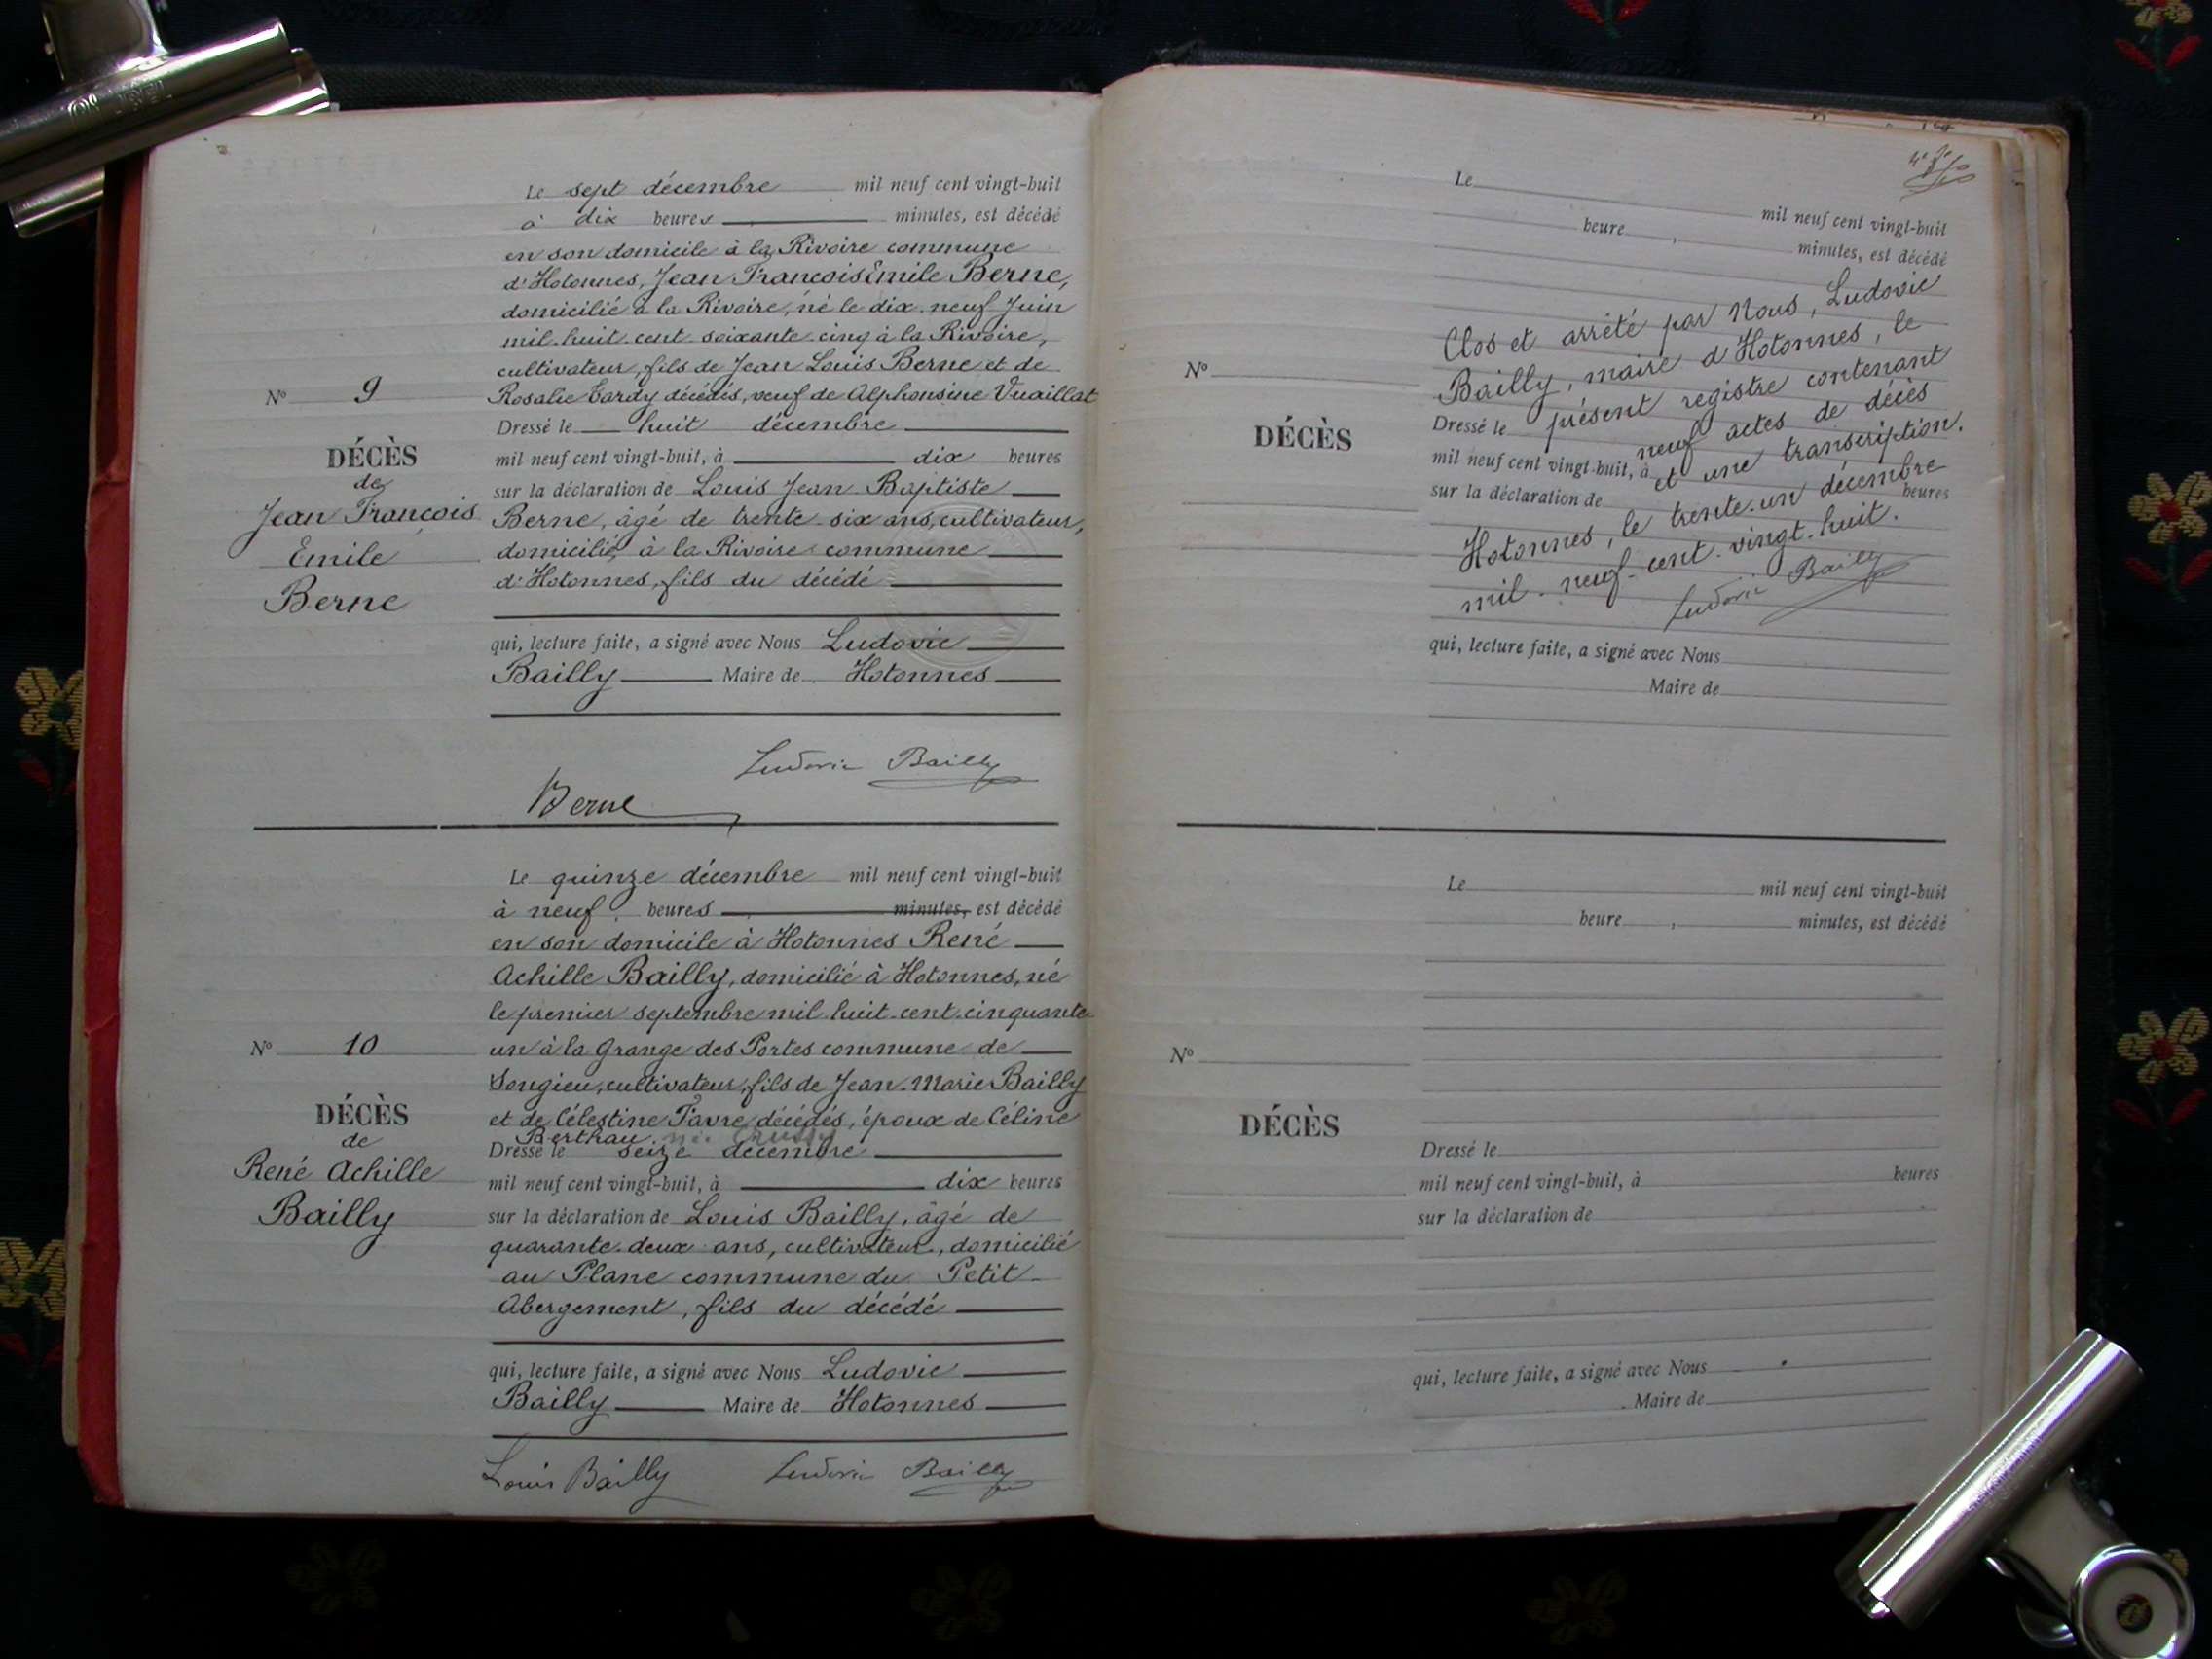 Le sept décembre mil neuf cent vingt-huit
à dix heures minutes, est décédé
en son domicile à la Rivoire commune
d'Hotonnes, Jean François Emile Berne,
domicilié à la Rivoire, né le dix-neuf Juin
mil-huit-cent-soixante-cinq à la Rivoire,
cultivateur, fils de Jean Louis Berne et de
N° 9 Rosalie Tardy décédés, veuf de Alphonsine Vuaillat
Dressé le huit décembre
DÉCÈS mil neuf cent vingt-huit, à dix heures
de sur la déclaration de Louis Jean Baptiste
Jean François Berne, âgé de trente-six ans, cultivateur,
Emile domicilié, à la Rivoire commune
d'Hotonnes, fils du décédé
Berne
qui, lecture faite, a signé avec Nous Ludovic
Bailly Maire de Hotonnes
Ludovic Bailly
Berne
Le quinze décembre mil neuf cent vingt-huit
à neuf heures minutes, est décédé
en son domicile à Hotonnes René
Achille Bailly, domicilié à Hotonnes, né
le premier septembre mil-huit-cent-cinquante-
N° 10 un à la Grange des Portes commune de
Songieu, cultivateur, fils de Jean-Marie Bailly
DÉCÈS et de Célestine Favre décédés, époux de Céline
de Berthau. née
Dressé le seize décembre
René Achille mil neuf cent vingt-huit, à dix heures
Bailly sur la déclaration de Louis Bailly, âgé de
quarante-deux ans, cultivateur, domicilié
au Plane commune du Petit-
Abergement, fils du décédé
qui, lecture faite, a signé avec Nous Ludovic
Bailly Maire de Hotonnes
Louis Bailly Ludovic Bailly
Le mil neuf cent vingt-huit
heure , minutes, est décédé
Clos et arrêté par Nous, Ludovic
Bailly, maire d'Hotonnes, le
N°
présent registre contenant
Dressé le
neuf actes de décès
DÉCÈS
mil neuf cent vingt-huit, à heures
et une transcription.
sur la déclaration de
Hotonnes, le trente-un décembre
mil-neuf-cent-vingt-huit.
Ludovic Bailly
qui, lecture faite, a signé avec Nous
Maire de
Le mil neuf cent vingt-huit
heure , minutes, est décédé
N°
DÉCÈS
Dressé le
mil neuf cent vingt-huit, à heures
sur la déclaration de
qui, lecture faite, a signé avec Nous
Maire de